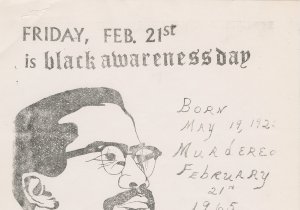 FRIDAY, FEB. 21st
is black awareness day
BORN
MAY 19, 192
MURDERED
FEBRUARY
21st
1965